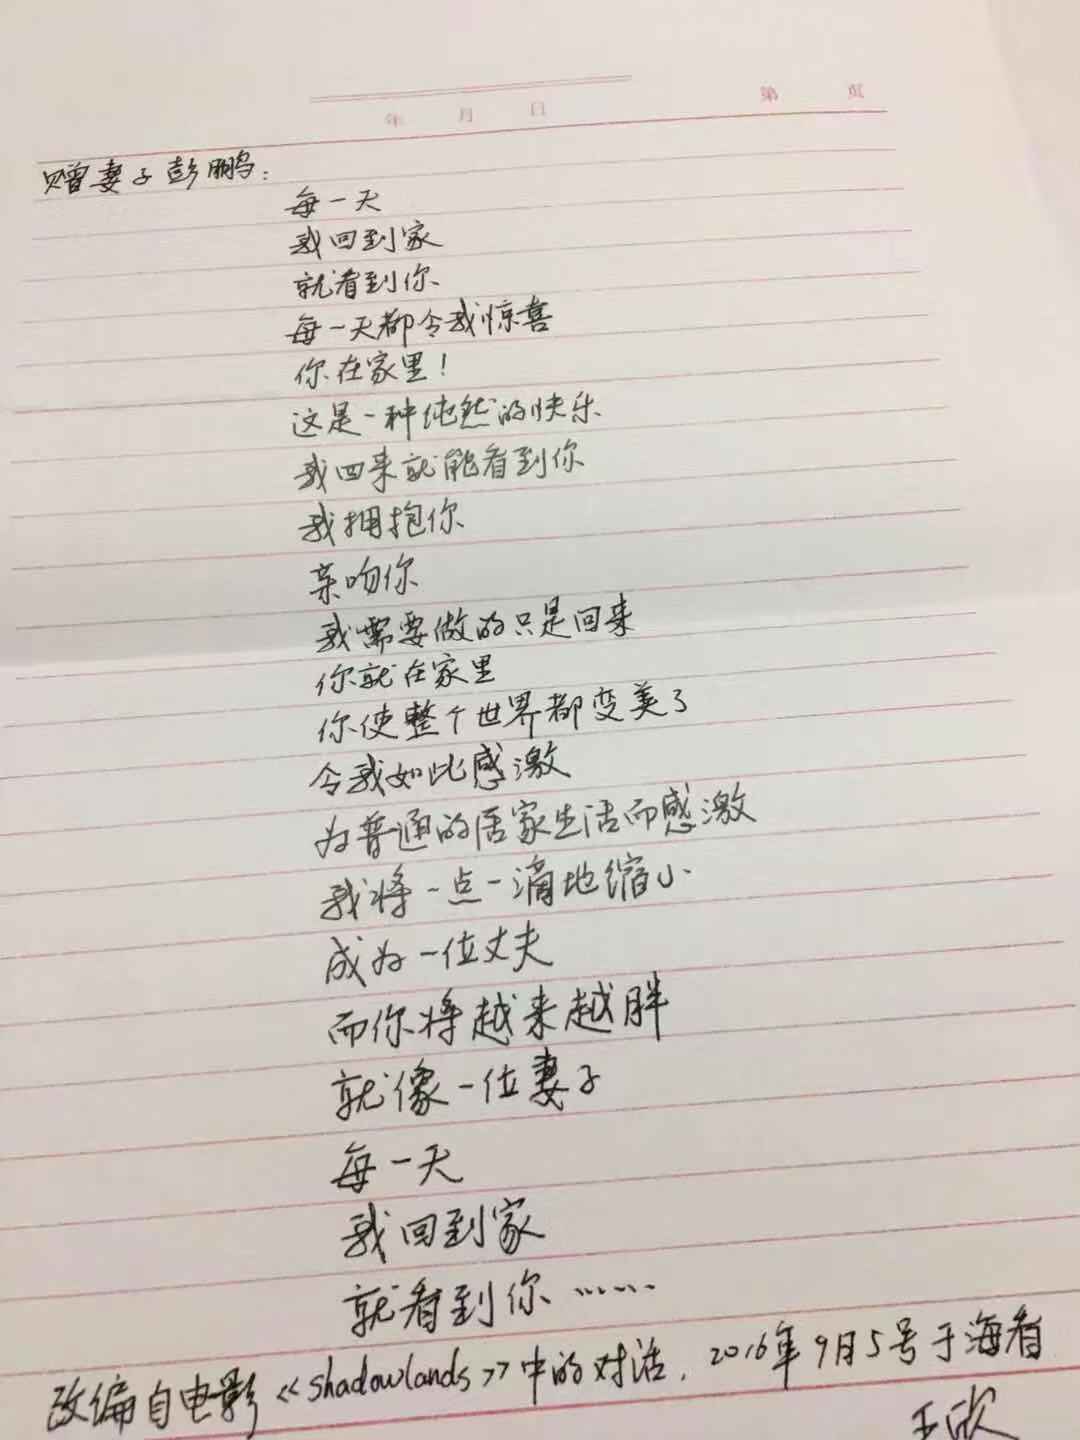 年 月 日 第 页
赠妻子彭鹏:
每一天
我回到家
就看到你
每一天都令我惊喜
你在家里!
这是一种纯然的快乐
我回来就能看到你
我拥抱你
亲吻你
我需要做的只是回来
你就在家里
你使整个世界都变美了
令我如此感激
为普通的居家生活而感激
我将一点一滴地缩小
成为一位丈夫
而你将越来越胖
就像一位妻子
每一天
我回到家
就看到你……
改编自电影《shadowlands》中的对话,2016年9月5号于海看
王欣